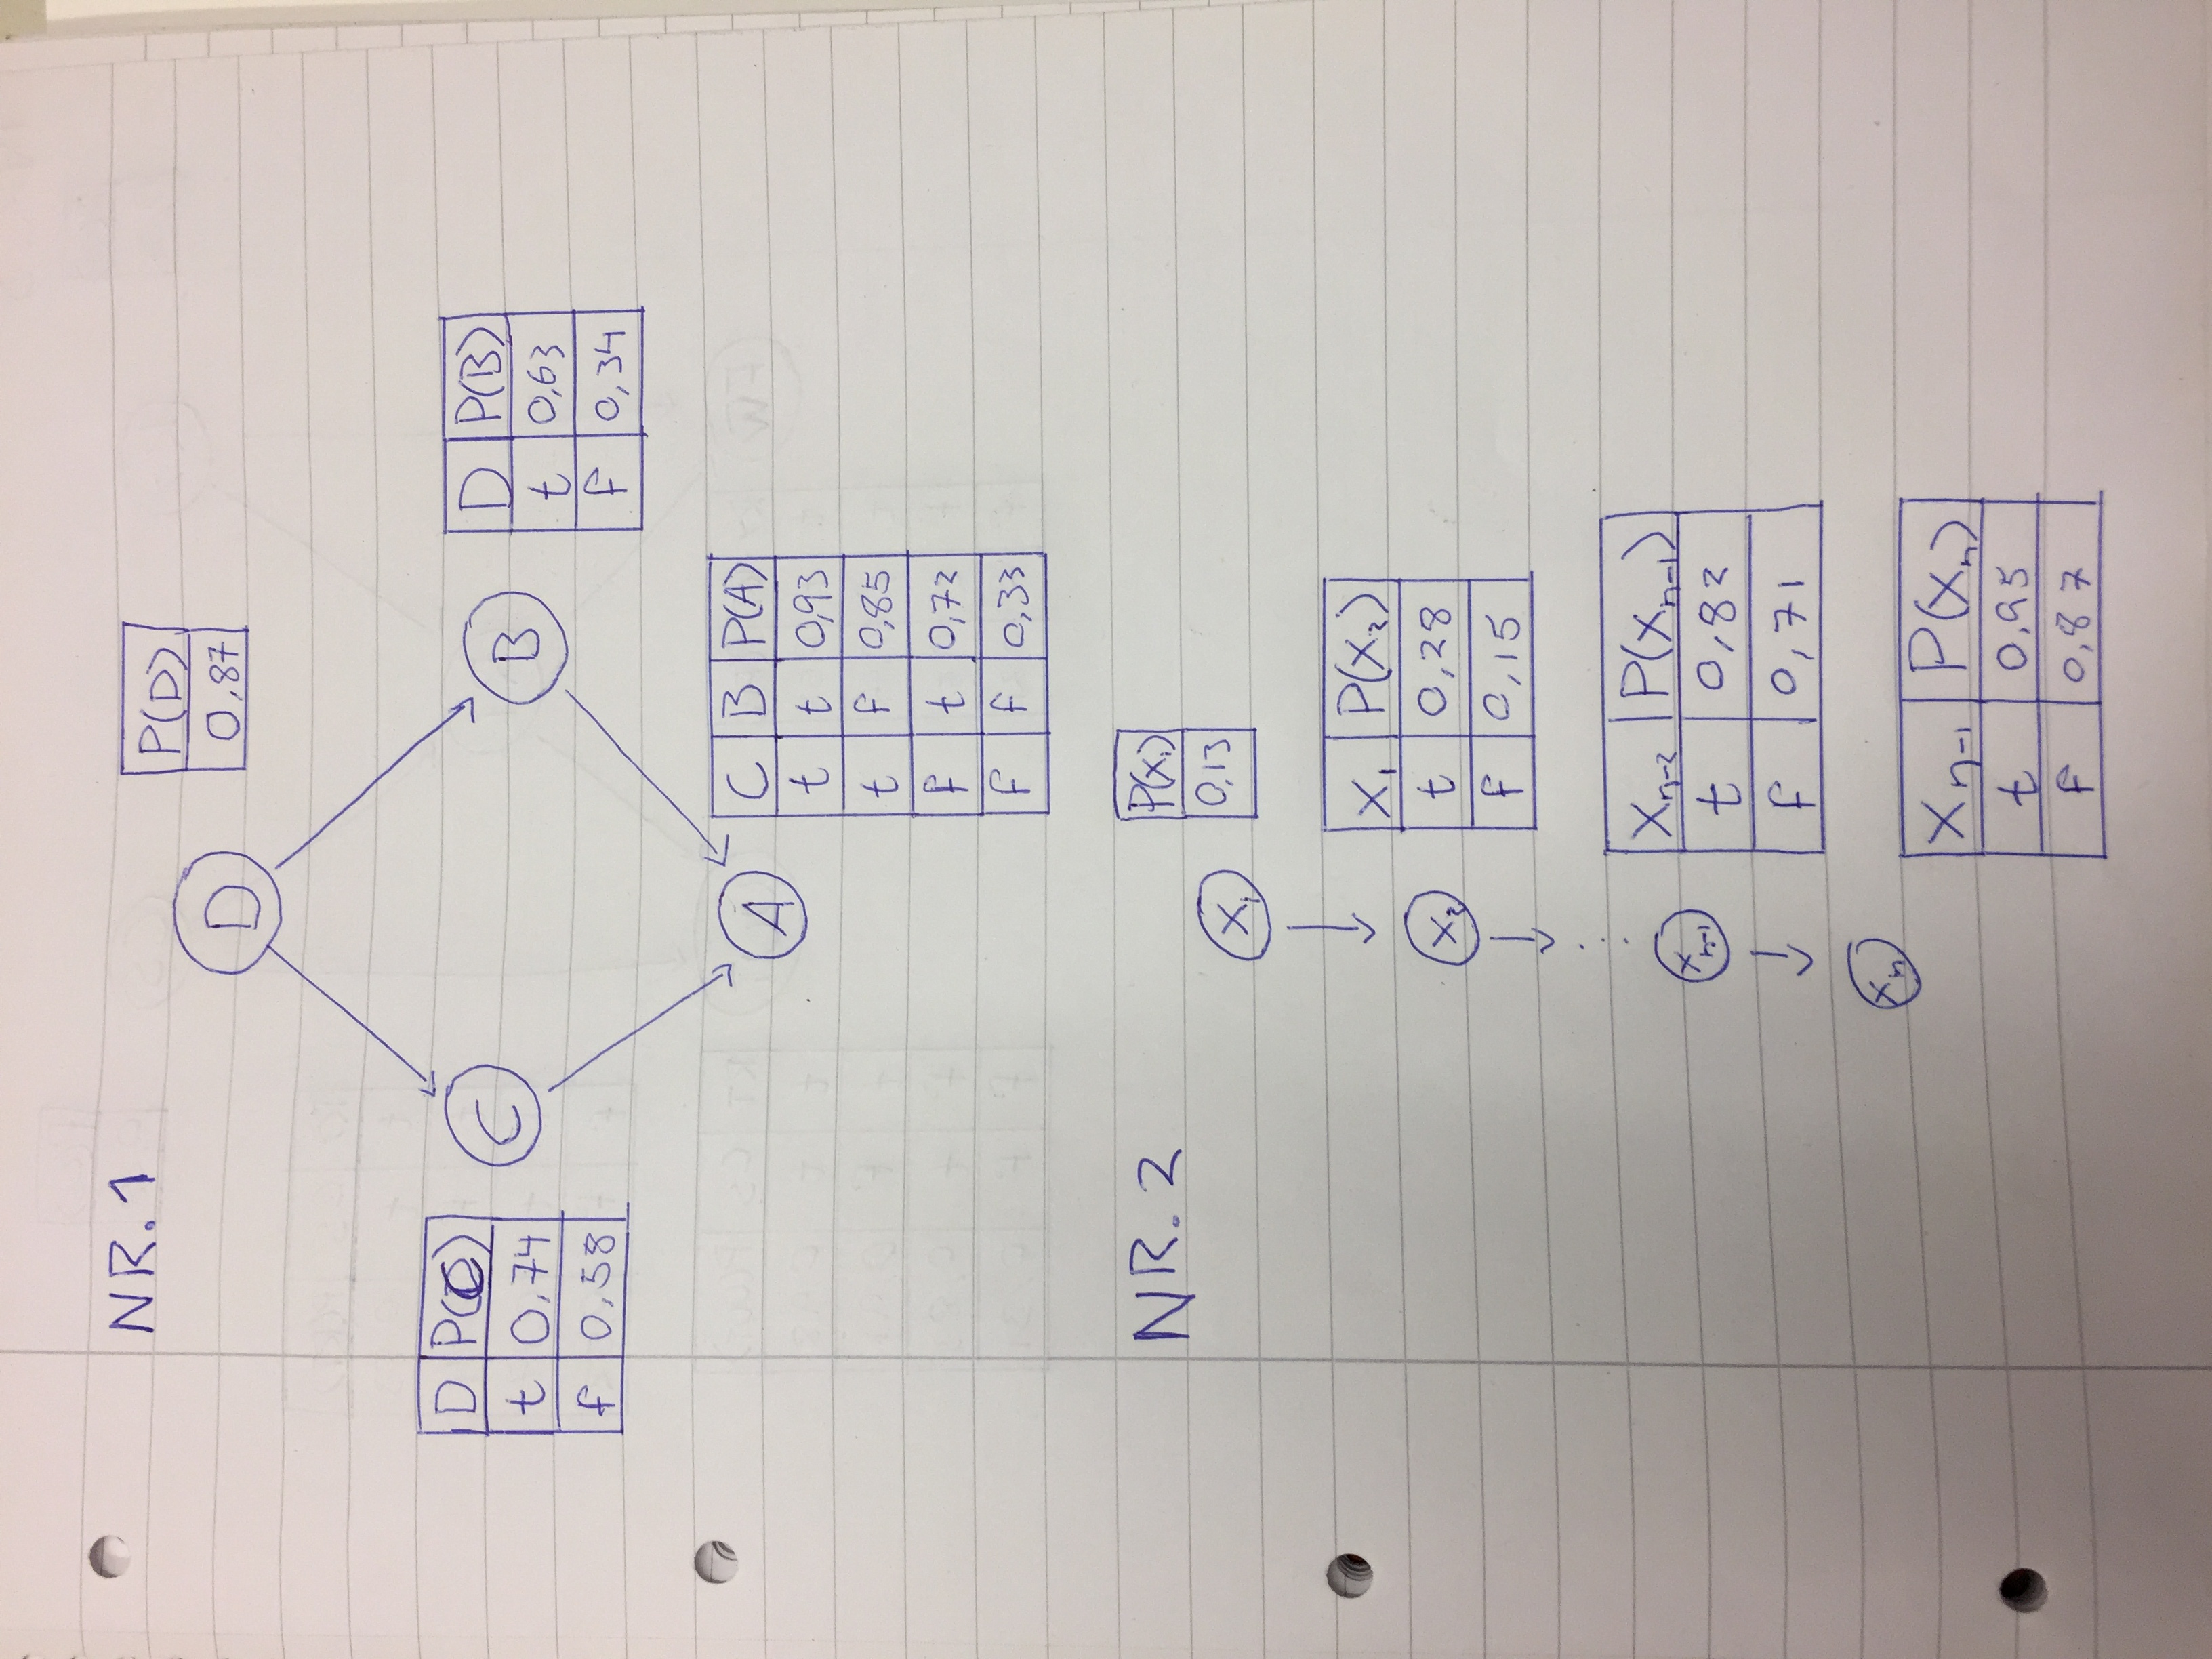 NR. 1
P(D)
0,87
D
D P(C)
t 0,74
f 0,58
C
B
D P(B)
t 0,63
f 0,34
A
C B P(A)
t t 0,93
t f 0,85
f t 0,72
f f 0,33
NR. 2
P(X₁)
0,13
X₁
X₁ P(X₂)
t 0,28
f 0,15
X₂
⋮
Xₙ₋₂ P(Xₙ₋₁)
t 0,82
f 0,71
Xₙ₋₁
Xₙ
Xₙ₋₁ P(Xₙ)
t 0,95
f 0,87